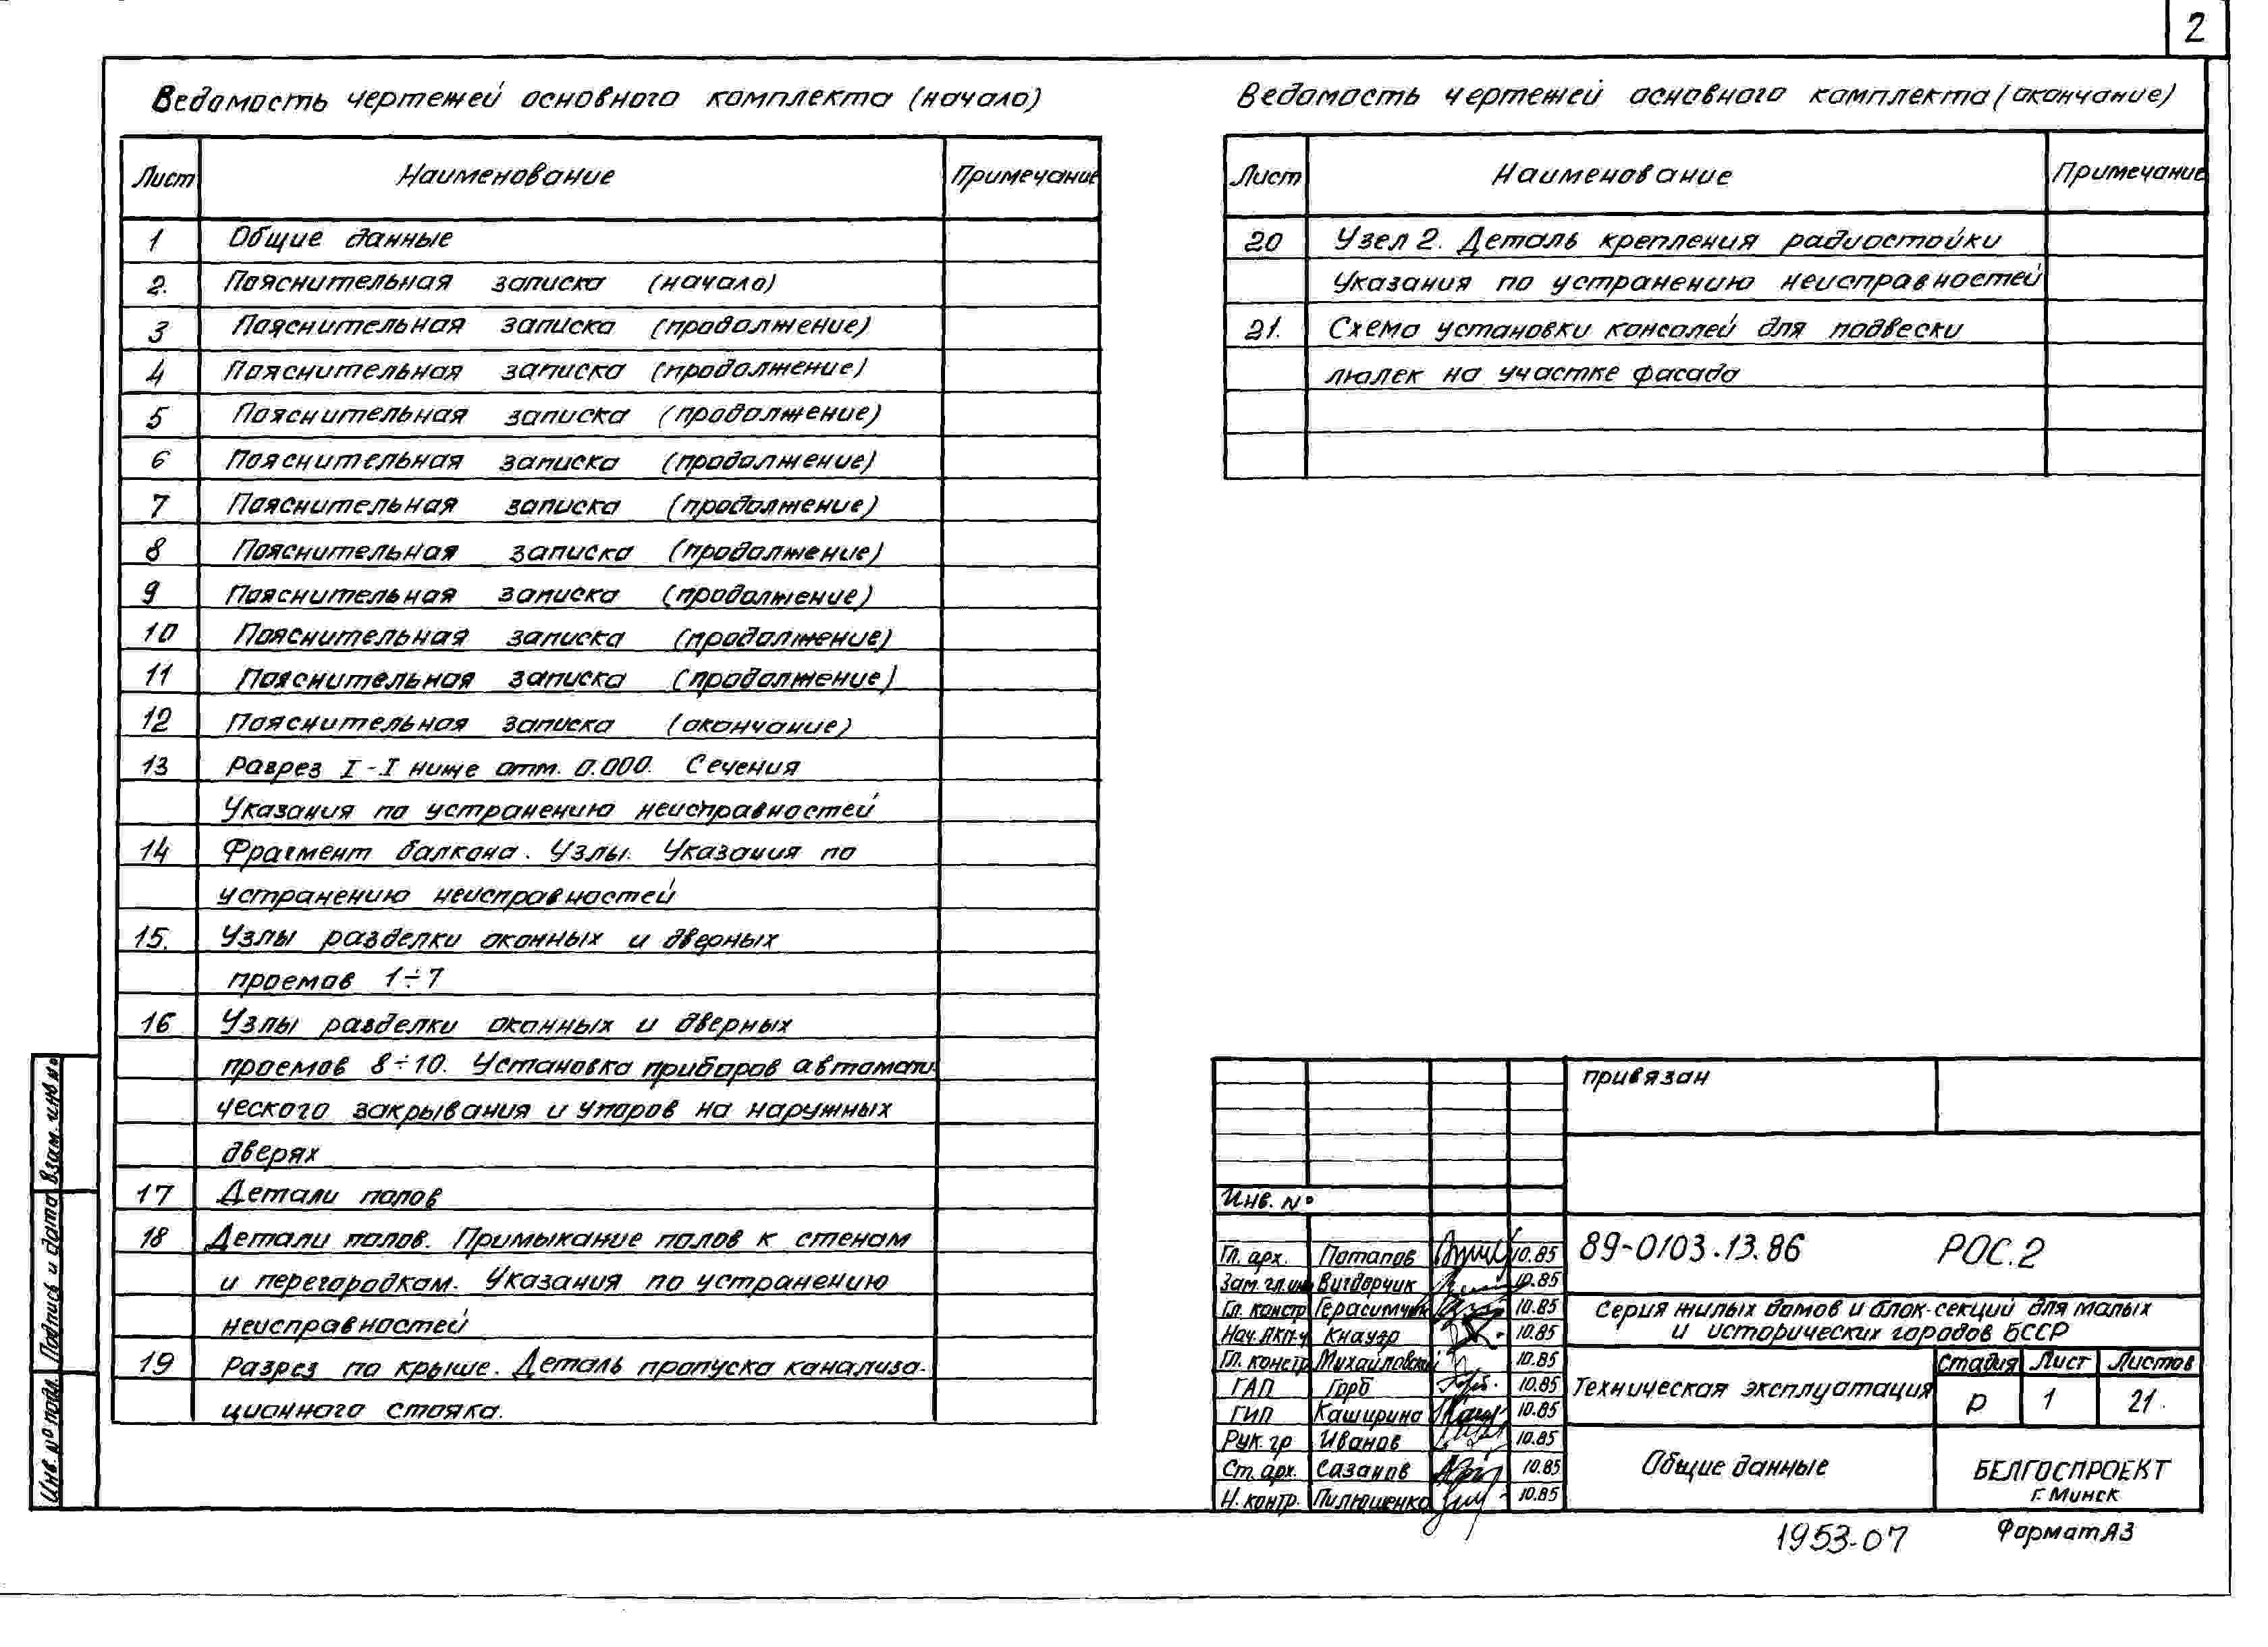 2
Ведомость чертежей основного комплекта (начало)
Лист Наименование Примечание
1 Общие данные
2. Пояснительная записка (начало)
3 Пояснительная записка (продолжение)
4 Пояснительная записка (продолжение)
5 Пояснительная записка (продолжение)
6 Пояснительная записка (продолжение)
7 Пояснительная записка (продолжение)
8 Пояснительная записка (продолжение)
9 Пояснительная записка (продолжение)
10 Пояснительная записка (продолжение)
11 Пояснительная записка (продолжение)
12 Пояснительная записка (окончание)
13 Разрез I-I ниже отм. 0.000. Сечения
Указания по устранению неисправностей
14 Фрагмент балкона. Узлы. Указания по
устранению неисправностей
15. Узлы разделки оконных и дверных
проемов 1÷7
16 Узлы разделки оконных и дверных
проемов 8÷10. Установка приборов автомати-
ческого закрывания и упоров на наружных
дверях
17 Детали полов
18 Детали полов. Примыкание полов к стенам
и перегородкам. Указания по устранению
неисправностей
19 Разрез по крыше. Деталь пропуска канализа-
ционного стояка.
Ведомость чертежей основного комплекта (окончание)
Лист Наименование Примечание
20 Узел 2. Деталь крепления радиостойки
Указания по устранению неисправностей
21. Схема установки консолей для подвески
люлек на участке фасада
привязан
Инв. №
Гл. арх. Потапов 10.85
Зам. гл. инж Вигдорчик 10.85
Гл. констр Герасимчик 10.85
Нач. АКП-4 Кнауэр 10.85
Гл. констр Михайловский 10.85
ГАП Горб 10.85
ГИП Каширина 10.85
Рук. гр Иванов 10.85
Ст. арх. Сазанов 10.85
Н. контр. Пилющенко 10.85
89-0103.13.86 РОС.2
Серия жилых домов и блок-секций для малых
и исторических городов БССР
Техническая эксплуатация
Стадия Лист Листов
Р 1 21.
Общие данные
БЕЛГОСПРОЕКТ
г. Минск
1953-07 Формат А3
Взам. инв №
Подпись и дата
Инв. № подл.